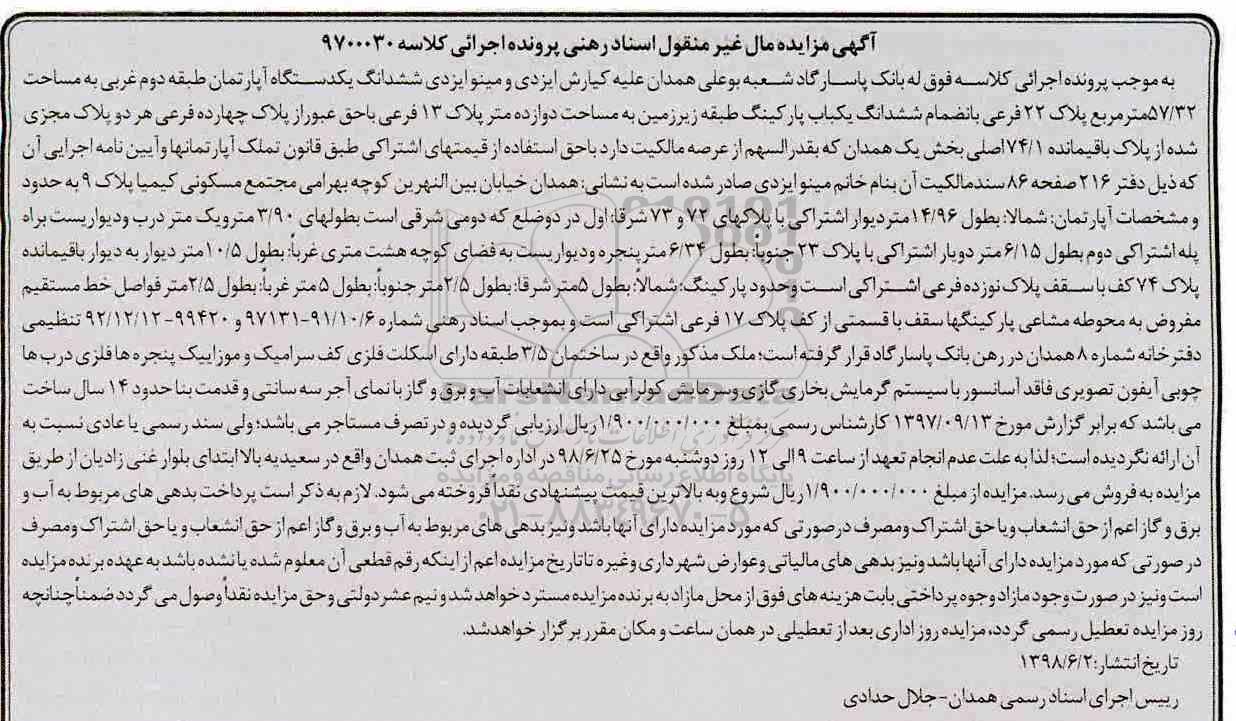 آگهی مزایده مال غیر منقول اسناد رهنی پرونده اجرائی کلاسه ۹۷۰۰۰۳۰
به موجب پرونده اجرائی کلاسه فوق له بانک پاسارگاد شعبه بوعلی همدان علیه کیارش ایزدی و مینو ایزدی ششدانگ یکدستگاه آپارتمان طبقه دوم غربی به مساحت
۵۷/۳۲مترمربع پلاک ۲۲ فرعی بانضمام ششدانگ یکباب پارکینگ طبقه زیرزمین به مساحت دوازده متر پلاک ۱۳ فرعی باحق عبور از پلاک چهارده فرعی هر دو پلاک مجزی
شده از پلاک باقیمانده ۷۴/۱اصلی بخش یک همدان که بقدرالسهم از عرصه مالکیت دارد باحق استفاده از قیمتهای اشتراکی طبق قانون تملک آپارتمانها وآیین نامه اجرایی آن
که ذیل دفتر ۲۱۶ صفحه ۸۶ سندمالکیت آن بنام خانم مینو ایزدی صادر شده است به نشانی: همدان خیابان بین النهرین کوچه بهرامی مجتمع مسکونی کیمیا پلاک ۹ به حدود
و مشخصات آپارتمان: شمالا: بطول ۱۴/۹۶متردیوار اشتراکی با پلاکهای ۷۲ و ۷۳ شرقا: اول در دوضلع که دومی شرقی است بطولهای ۳/۹۰ مترویک متر درب ودیواریست براه
پله اشتراکی دوم بطول ۶/۱۵متر دویار اشتراکی با پلاک ۲۳ جنوباً: بطول ۶/۳۴ متر پنجره ودیواریست به فضای کوچه هشت متری غرباً: بطول ۱۰/۵متر دیوار به دیوار باقیمانده
پلاک ۷۴ کف با سقف پلاک نوزده فرعی اشتراکی است وحدود پارکینگ: شمالاً: بطول ۵متر شرقا: بطول ۲/۵متر جنوباً: بطول ۵ متر غرباً: بطول ۲/۵متر فواصل خط مستقیم
مفروض به محوطه مشاعی پارکینگها سقف با قسمتی از کف پلاک ۱۷ فرعی اشتراکی است و بموجب اسناد رهنی شماره ۹۱/۱۰/۶-۹۷۱۳۱ و ۹۹۴۲۰-۹۲/۱۲/۱۲ تنظیمی
دفترخانه شماره ۸ همدان در رهن بانک پاسارگاد قرار گرفته است؛ ملک مذکور واقع در ساختمان ۳/۵ طبقه دارای اسکلت فلزی کف سرامیک و موزاییک پنجره ها فلزی درب ها
چوبی آیفون تصویری فاقد آسانسور با سیستم گرمایش بخاری گازی وسرمایش کولرآبی دارای انشعابات آب و برق و گاز با نمای آجر سه سانتی و قدمت بنا حدود ۱۴ سال ساخت
می باشد که برابر گزارش مورخ ۱۳۹۷/۰۹/۱۳ کارشناس رسمی بمبلغ ۱/۹۰۰/۰۰۰/۰۰۰ریال ارزیابی گردیده و در تصرف مستاجر می باشد؛ ولی سند رسمی یا عادی نسبت به
آن ارائه نگردیده است؛ لذا به علت عدم انجام تعهد از ساعت ۹ الی ۱۲ روز دوشنبه مورخ ۹۸/۶/۲۵ در اداره اجرای ثبت همدان واقع در سعیدیه بالا ابتدای بلوار غنی زادیان از طریق
مزایده به فروش می رسد. مزایده از مبلغ ۱/۹۰۰/۰۰۰/۰۰۰ریال شروع وبه بالاترین قیمت پیشنهادی نقداً فروخته می شود. لازم به ذکر است پرداخت بدهی های مربوط به آب و
برق و گاز اعم از حق انشعاب ویا حق اشتراک ومصرف درصورتی که مورد مزایده دارای آنها باشد ونیز بدهی های مربوط به آب و برق و گاز اعم از حق انشعاب و یا حق اشتراک ومصرف
در صورتی که مورد مزایده دارای آنها باشد ونیز بدهی های مالیاتی وعوارض شهرداری وغیره تا تاریخ مزایده اعم از اینکه رقم قطعی آن معلوم شده یا نشده باشد به عهده برنده مزایده
است ونیز در صورت وجود مازاد وجوه پرداختی بابت هزینه های فوق از محل مازاد به برنده مزایده مسترد خواهد شد و نیم عشر دولتی وحق مزایده نقداً وصول می گردد ضمناً چنانچه
روز مزایده تعطیل رسمی گردد، مزایده روز اداری بعد از تعطیلی در همان ساعت و مکان مقرر برگزار خواهدشد.
تاریخ انتشار: ۱۳۹۸/۶/۲
رییس اجرای اسناد رسمی همدان-جلال حدادی
پایگاه اطلاع رسانی مناقصه و مزایده
۰۲۱-۸۸۳۴۹۶۷۰-۵